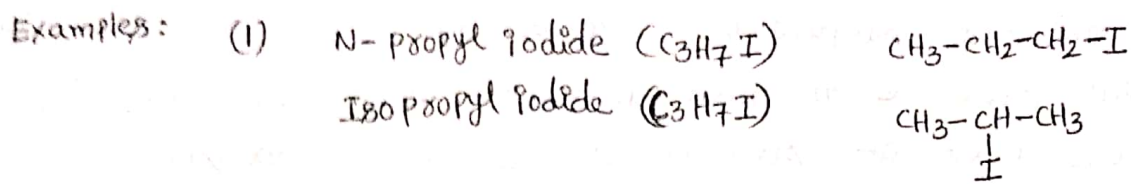 Examples: (1) N-propyl iodide (C3H7I) CH3-CH2-CH2-I
Isopropyl iodide (C3H7I) CH3-CH-CH3
I